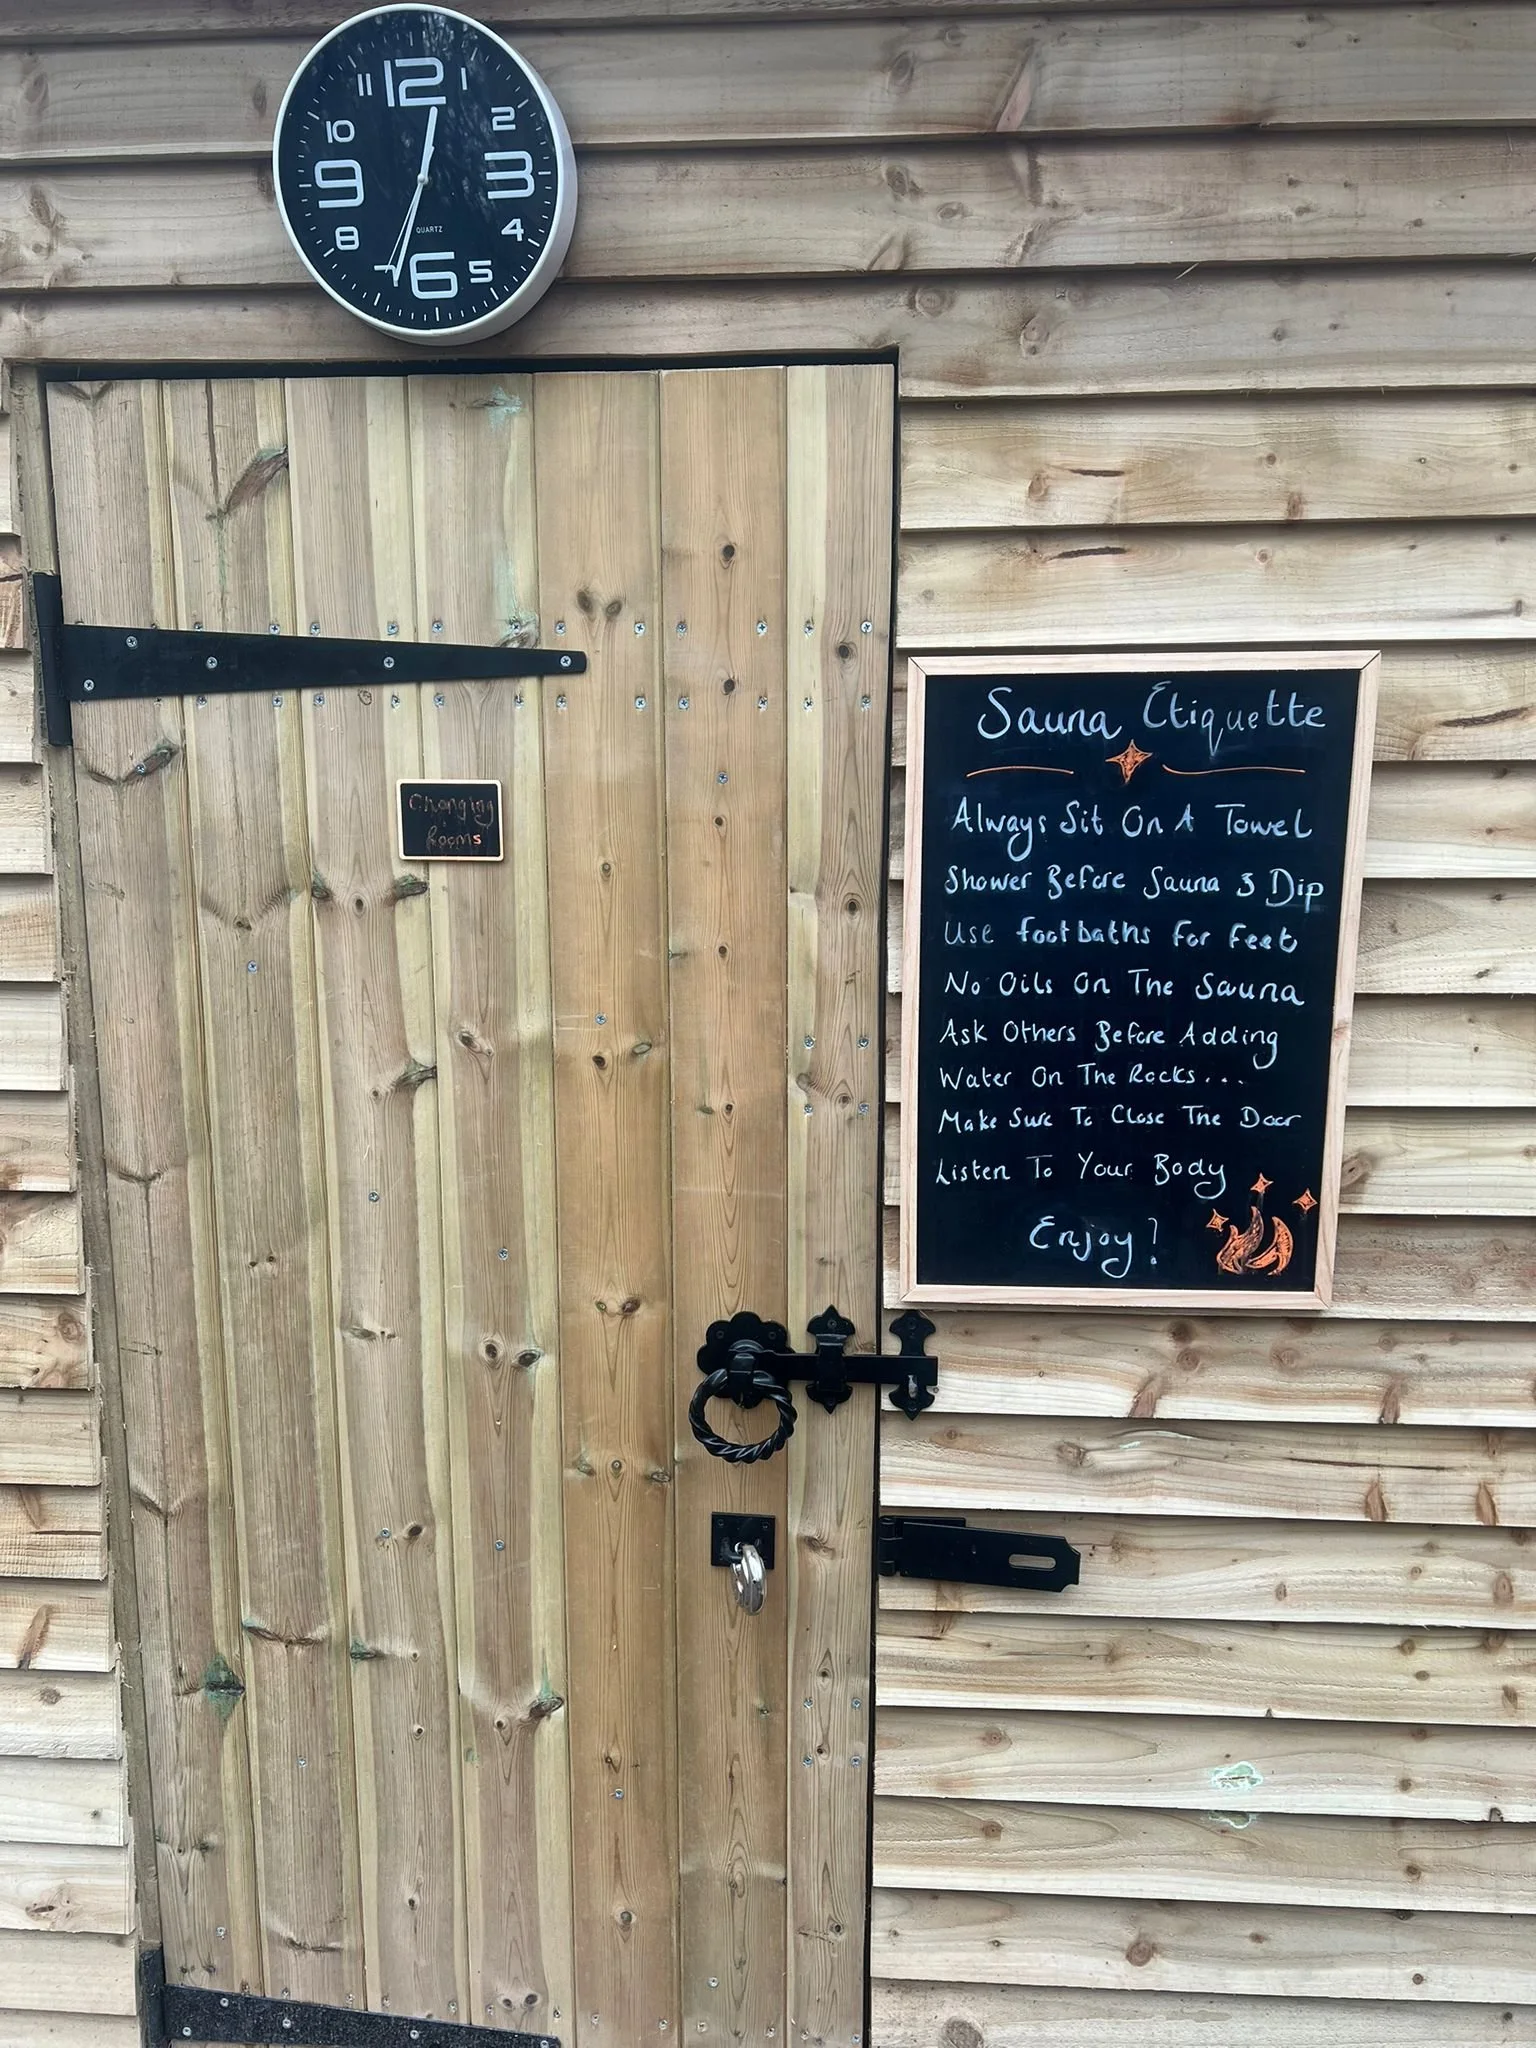 12
11
1
10
2
9
3
8
4
QUARTZ
6
5
Changing
Rooms
Sauna Etiquette
Always Sit On A Towel
Shower Before Sauna & Dip
Use footbaths for feet
No Oils On The Sauna
Ask Others Before Adding
Water On The Rocks...
Make Sure To Close The Door
Listen To Your Body
Enjoy!